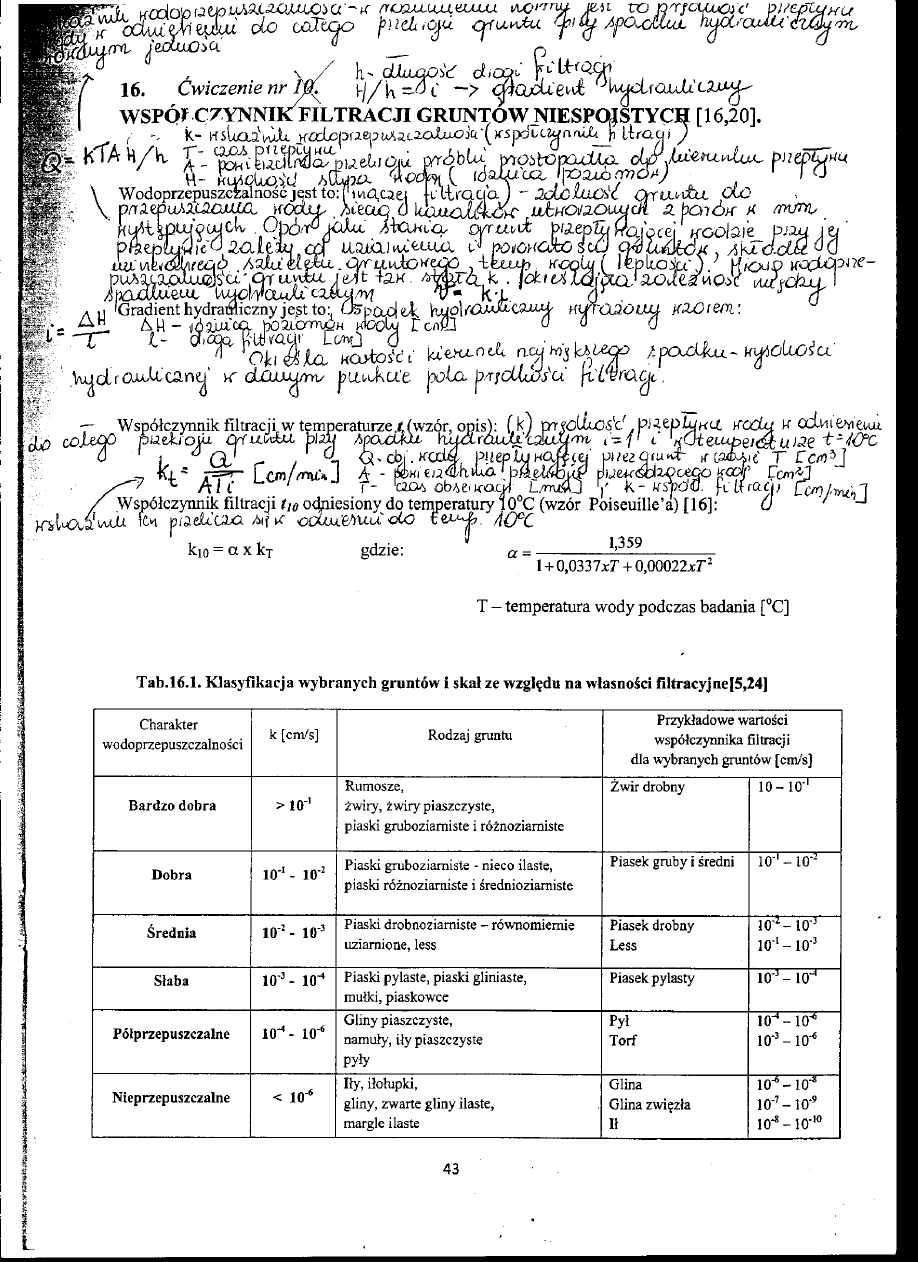 wodoprzepuszczalności - w rozumieniu normy jest to prędkość przepływu
w odniesieniu do całego przekroju gruntu przy spadku hydraulicznym
jedności
h - długość drogi filtracji
16. Ćwiczenie nr 10.
H/h = i -> gradient hydrauliczny
WSPÓŁCZYNNIK FILTRACJI GRUNTÓW NIESPOISTYCH [16,20].
k - wskaźnik wodoprzepuszczalności (współczynnik filtracji)
Q = kTAH/h
T - czas przepływu
A - powierzchnia przekroju próbki prostopadła do kierunku przepływu
H - wysokość słupa wody (różnica poziomów)
Wodoprzepuszczalność jest to: (inaczej filtracja) - zdolność gruntu do
przepuszczania wody siecią kanalików utworzonych z porów w nim
występujących. Opór jaki stawia grunt przepływającej wodzie przy jej
przepływie zależy od uziarnienia i porowatości gruntów, składu
mineralnego szkieletu gruntowego, temp. wody (lepkości). Miarą wodoprze-
puszczalności gruntu jest tzw. stała k. określająca zależność między
spadkiem hydraulicznym v = k·i
Gradient hydrauliczny jest to: Spadek hydrauliczny wyrażony wzorem:
i = ΔH/l
ΔH - różnica poziomów wody [cm]
l - droga filtracji [cm]
Określa wartość i kierunek największego spadku - wysokości
hydraulicznej w danym punkcie pola prędkości filtracji.
Współczynnik filtracji w temperaturze t (wzór, opis): (k) prędkość przepływu wody w odniesieniu
do całego przekroju gruntu przy spadku hydraulicznym i=1 i w temperaturze t=10°C
Q - obj. wody przepływającej przez grunt w czasie T [cm³]
kt = Q/ATi [cm/min]
A - powierzchnia przekroju przewodzącego wodę [cm²]
T - czas obserwacji [min] ; k - współ. filtracji [cm/min]
Współczynnik filtracji t10 odniesiony do temperatury 10°C (wzór Poiseuille'a) [16]:
wskaźnik ten przelicza się w odniesieniu do temp. 10°C
k10 = α x kT gdzie: α = 1,359 / 1+0,0337xT+0,00022xT²
T – temperatura wody podczas badania [°C]
Tab.16.1. Klasyfikacja wybranych gruntów i skał ze względu na własności filtracyjne[5,24]
Charakter wodoprzepuszczalności
k [cm/s]
Rodzaj gruntu
Przykładowe wartości współczynnika filtracji dla wybranych gruntów [cm/s]
Bardzo dobra
> 10⁻¹
Rumosze,
żwiry, żwiry piaszczyste,
piaski gruboziarniste i różnoziarniste
Żwir drobny 10 – 10⁻¹
Dobra
10⁻¹ - 10⁻²
Piaski gruboziarniste - nieco ilaste,
piaski różnoziarniste i średnioziarniste
Piasek gruby i średni 10⁻¹ – 10⁻²
Średnia
10⁻² - 10⁻³
Piaski drobnoziarniste – równomiernie
uziarnione, less
Piasek drobny 10⁻² – 10⁻³
Less 10⁻¹ – 10⁻³
Słaba
10⁻³ - 10⁻⁴
Piaski pylaste, piaski gliniaste,
mułki, piaskowce
Piasek pylasty 10⁻³ – 10⁻⁴
Półprzepuszczalne
10⁻⁴ - 10⁻⁶
Gliny piaszczyste,
namuły, iły piaszczyste
pyły
Pył 10⁻⁴ – 10⁻⁶
Torf 10⁻³ – 10⁻⁶
Nieprzepuszczalne
< 10⁻⁶
Iły, iłołupki,
gliny, zwarte gliny ilaste,
margle ilaste
Glina 10⁻⁶ – 10⁻⁸
Glina zwięzła 10⁻⁷ – 10⁻⁹
Ił 10⁻⁸ – 10⁻¹⁰
43